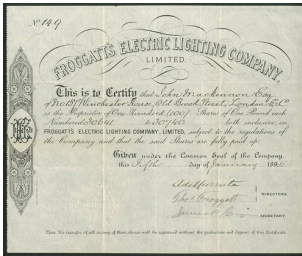 No. 149
FROGGATT'S ELECTRIC LIGHTING COMPANY,
LIMITED.
This is to Certify that John Mackennon Esq
of No 151 Winchester House, Old Broad Street, London E.C
is the Proprietor of One Hundred (100) Shares of One Pound each
Numbered to both inclusive, in
FROGGATT'S ELECTRIC LIGHTING COMPANY, LIMITED, subject to the regulations
of the Company and that the said Shares are fully paid up.
Given under the Common Seal of the Company,
this Fifth day of January 188
DIRECTORS.
Thos Froggatt
SECRETARY.
Note. No transfer of all or any of these shares will be registered without the production and deposit of this Certificate